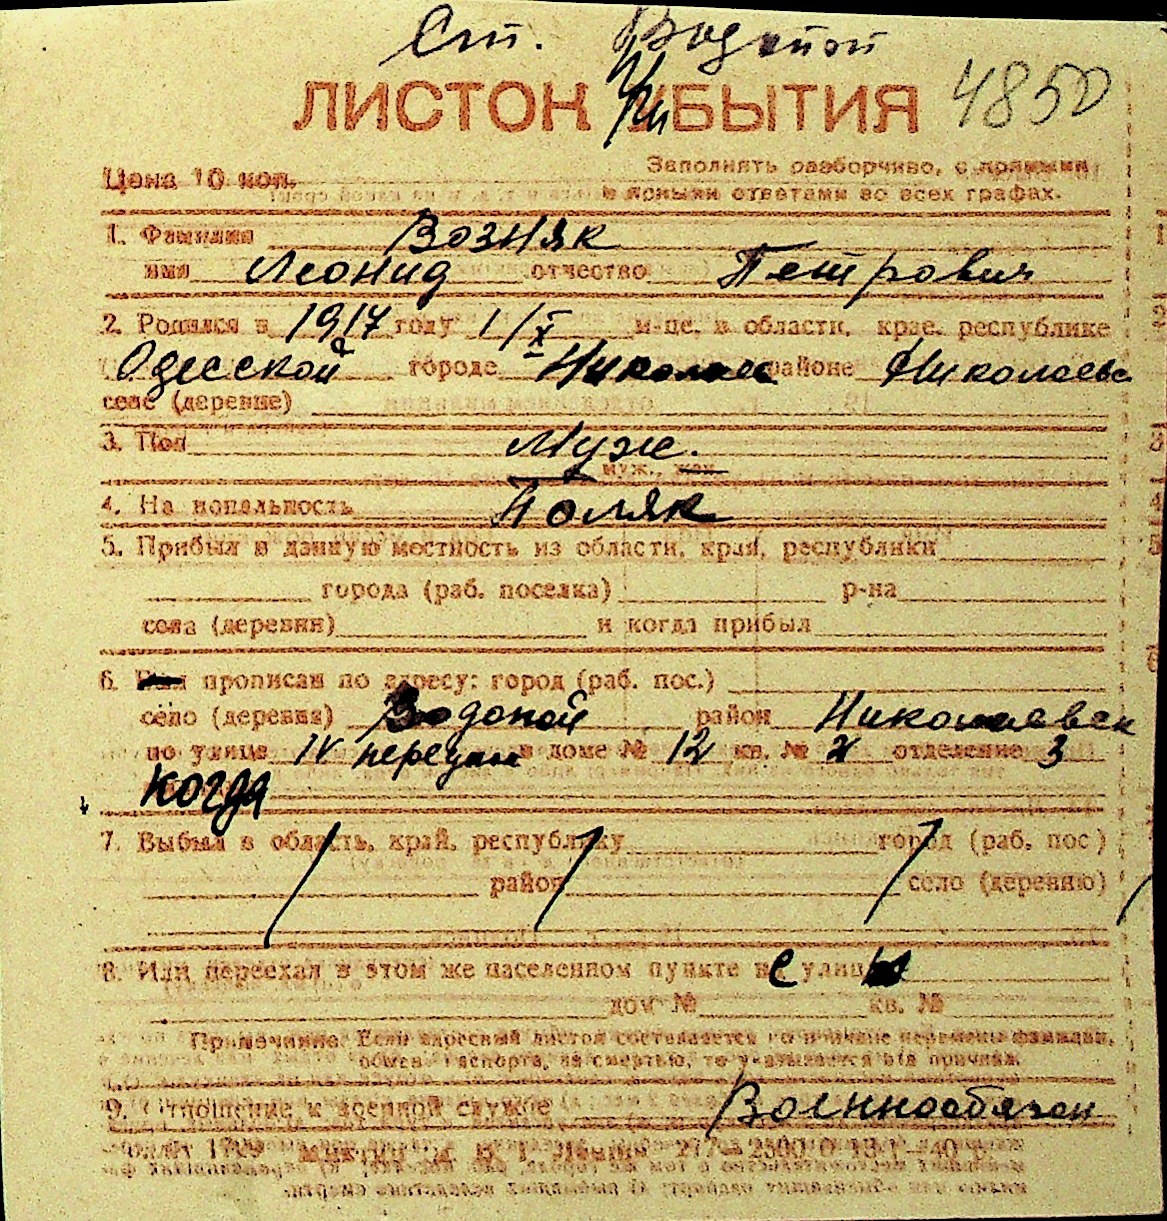 Ст. Водопой
ЛИСТОК При УБЫТИЯ 4850
Цена 10 коп. Заполнять разборчиво, с прямыми
и ясными ответами во всех графах.
1. Фамилия Возняк
имя Леонид отчество Петрович
2. Родился в 1917 году 1/X м-це, в области, крае, республике
Одесской городе Николаев районе Николаевс
селе (деревне)
3. Пол Муж.
муж., жен.
4. Национальность Поляк
5. Прибыл в данную местность из области, край, республики
города (раб. поселка) р-на
села (деревни) и когда прибыл
6. Был прописан по адресу: город (раб. пос.)
село (деревня) Водопой район Николаевск
по улице IV переули в доме № 12 кв. № отделение 3
когда
7. Выбыл в область, край, республику город (раб. пос)
район село (деревню)
8. Или переехал в этом же населенном пункте с улицы
дом № кв. №
Примечание: Если адресный листок составляется по причине перемены фамилии,
обмен паспорта, за смертью, то указывается эта причина.
9. Отношение к военной службе Военнообязан